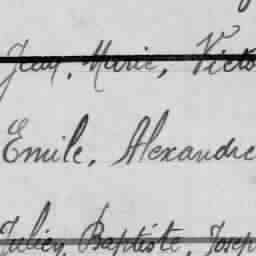 Jean, Marie, Victo
Emile, Alexandre
Julien, Baptiste, Josep